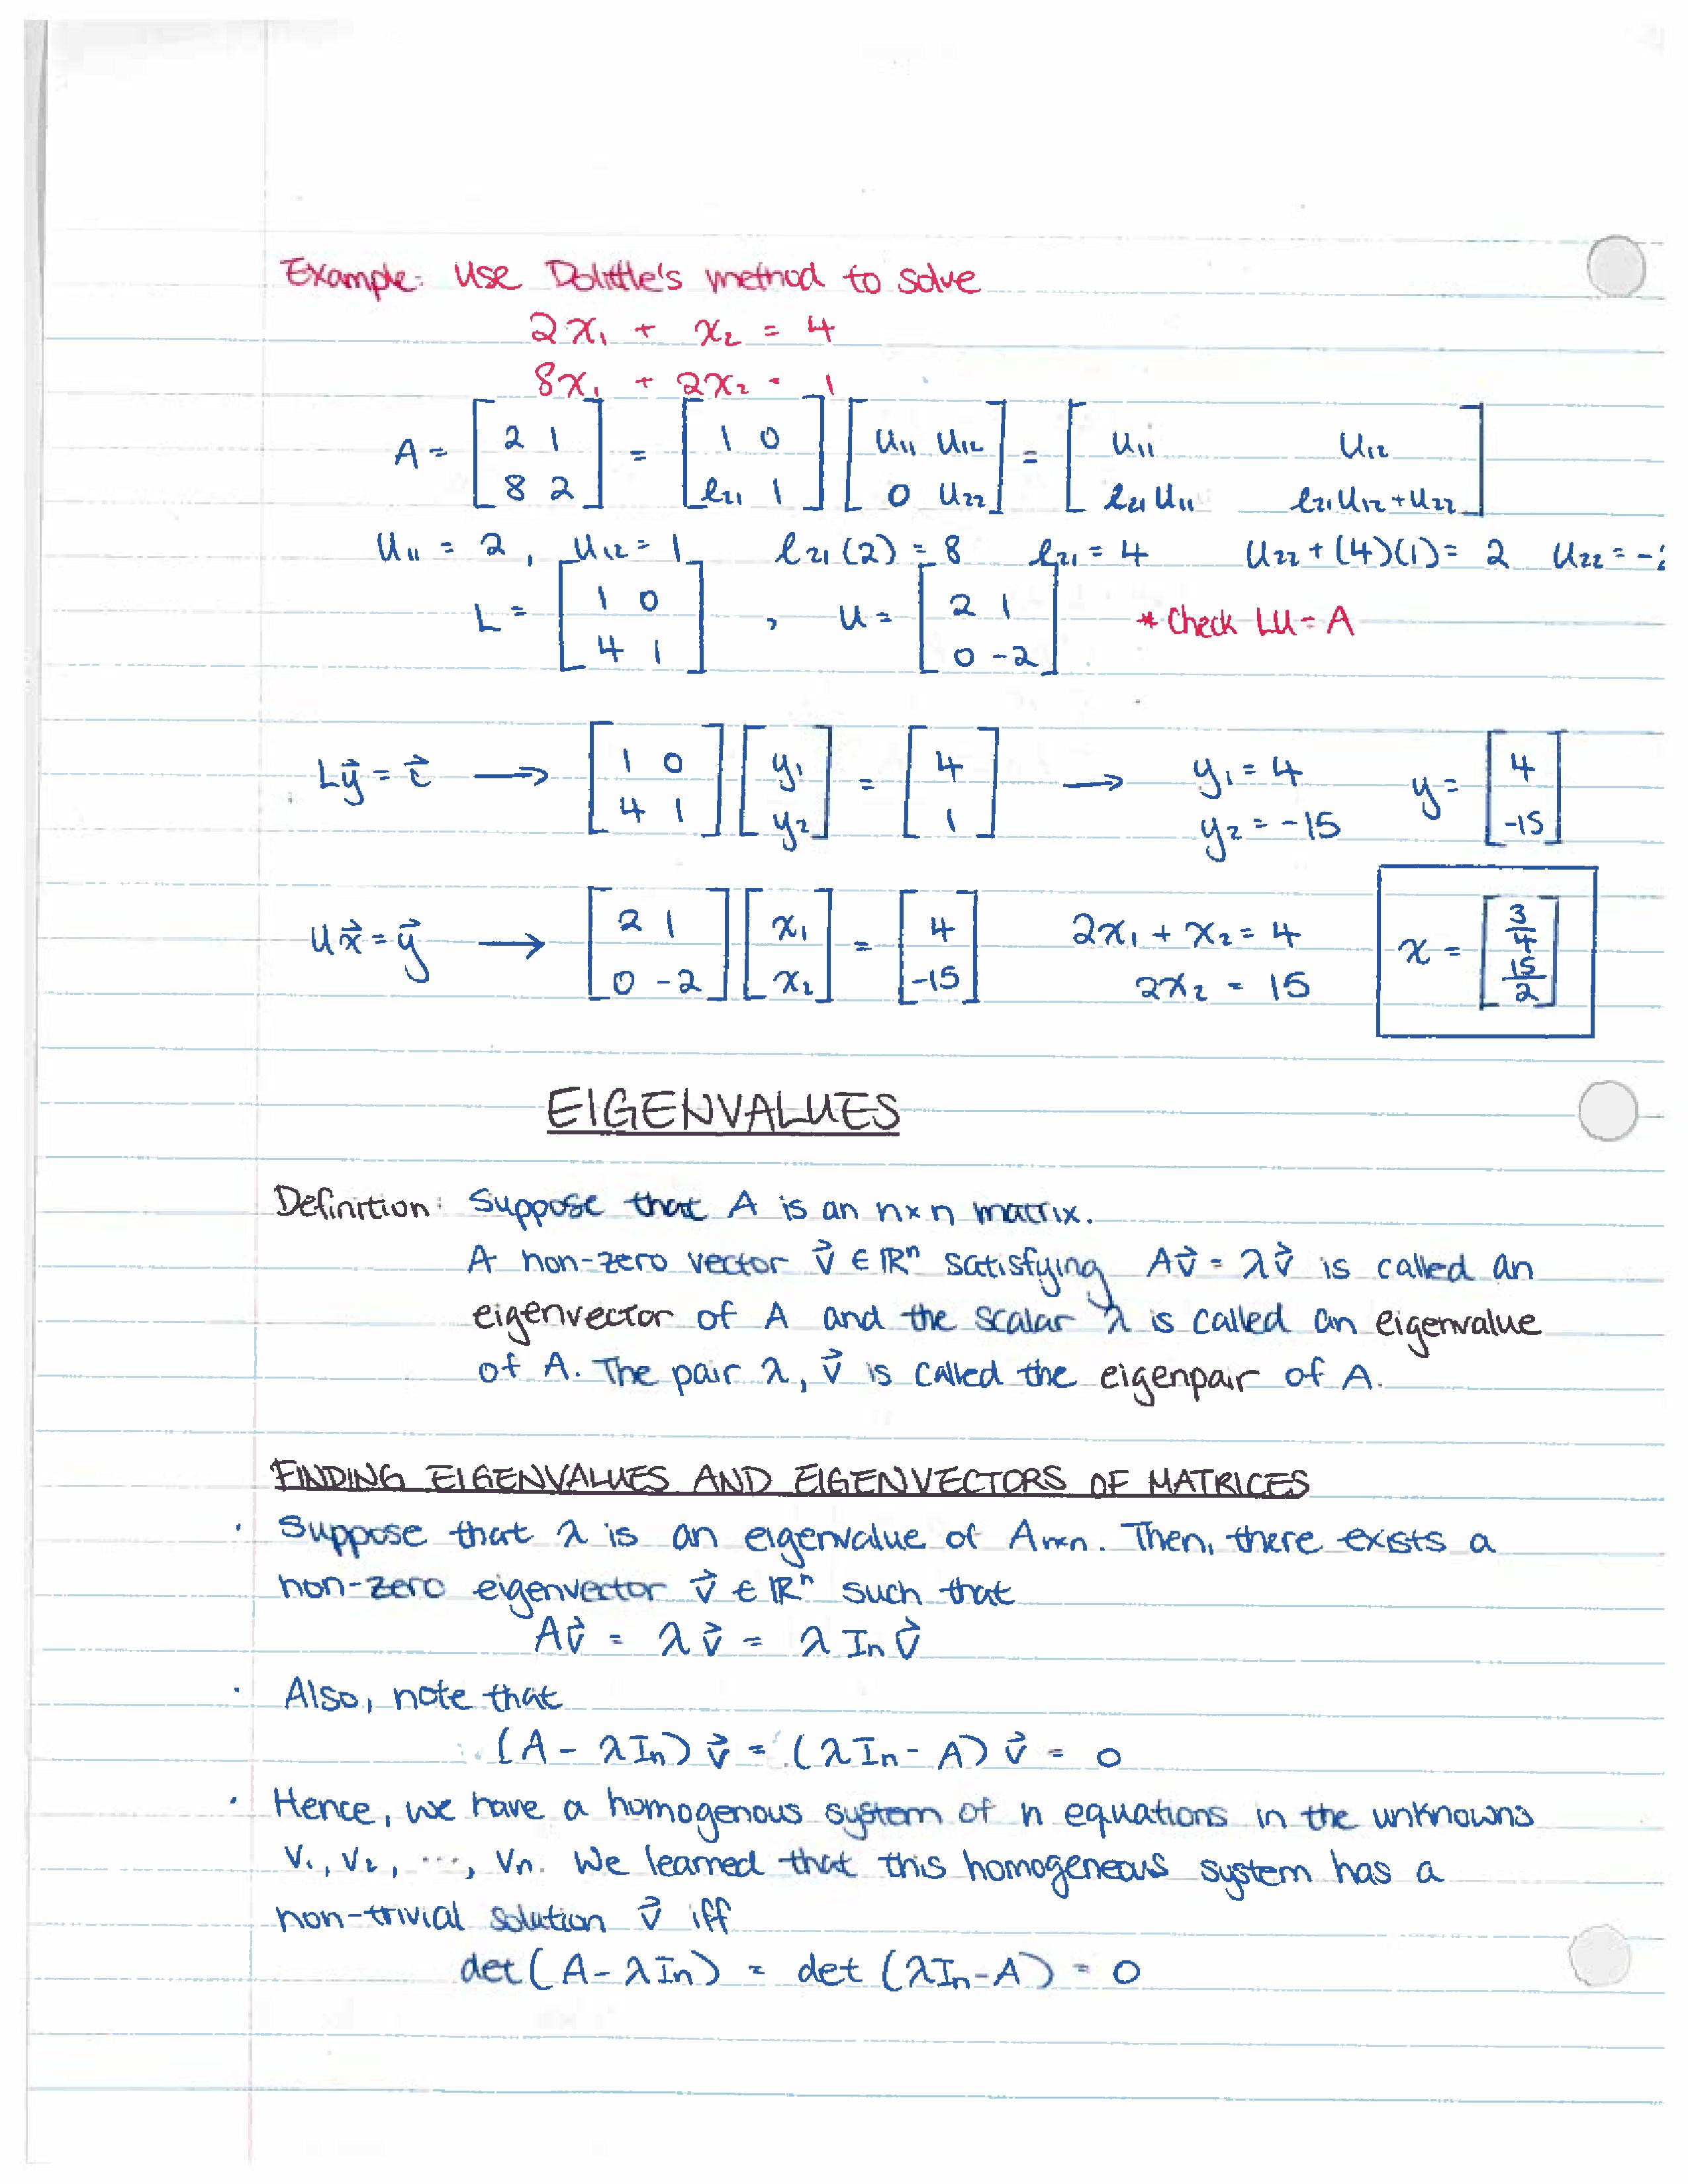 Example: Use Dolittle's method to solve
2x₁ + x₂ = 4
8x₁ + 2x₂ = 1
A = [2 1; 8 2] = [1 0; ℓ₂₁ 1] [u₁₁ u₁₂; 0 u₂₂] = [u₁₁ u₁₂; ℓ₂₁u₁₁ ℓ₂₁u₁₂+u₂₂]
u₁₁ = 2, u₁₂ = 1 ℓ₂₁(2) = 8 ℓ₂₁ = 4 u₂₂+(4)(1) = 2 u₂₂ = -2
L = [1 0; 4 1], U = [2 1; 0 -2] * Check LU = A
Ly⃗ = c⃗ → [1 0; 4 1] [y₁; y₂] = [4; 1] → y₁ = 4 y₂ = -15 y = [4; -15]
Ux⃗ = y⃗ → [2 1; 0 -2] [x₁; x₂] = [4; -15] 2x₁ + x₂ = 4 2x₂ = 15 x = [3/4; 15/2]
EIGENVALUES
Definition: Suppose that A is an n×n matrix.
A non-zero vector v⃗ ∈ ℝⁿ satisfying Av⃗ = λv⃗ is called an
eigenvector of A and the scalar λ is called an eigenvalue
of A. The pair λ, v⃗ is called the eigenpair of A.
FINDING EIGENVALUES AND EIGENVECTORS OF MATRICES
· Suppose that λ is an eigenvalue of Aₙₓₙ. Then, there exists a
non-zero eigenvector v⃗ ∈ ℝⁿ such that
Av⃗ = λv⃗ = λIₙv⃗
· Also, note that
(A - λIₙ)v⃗ = (λIₙ - A)v⃗ = 0
· Hence, we have a homogenous system of n equations in the unknowns
v₁, v₂, ..., vₙ. We learned that this homogeneous system has a
non-trivial solution v⃗ iff
det(A - λIₙ) = det(λIₙ - A) = 0